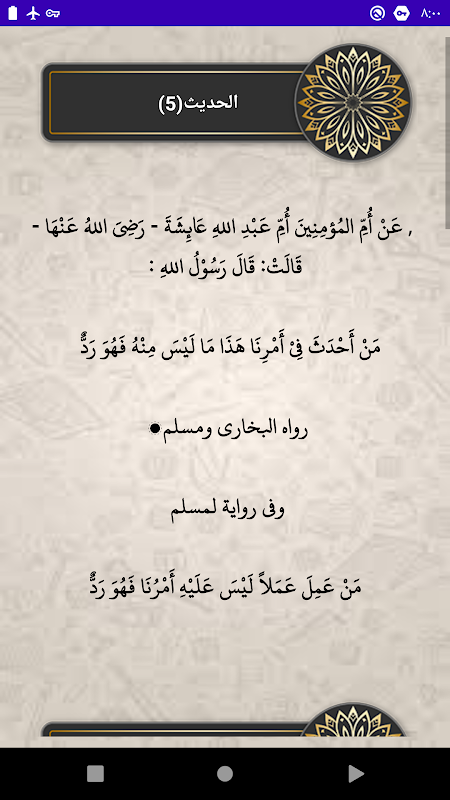 ٨:٠٠
الحديث(5)
, عَنْ أُمِّ المُؤمِنِينَ أُمِّ عَبْدِ اللهِ عَايِشَةَ - رَضِىَ اللهُ عَنْهَا -
قَالَتْ: قَالَ رَسُوْلُ اللهِ :
مَنْ أَحْدَثَ فِىْ أَمْرِنَا هَذَا مَا لَيْسَ مِنْهُ فَهُوَ رَدٌّ
رواه البخارى ومسلم●
وفى رواية لمسلم
مَنْ عَمِلَ عَمَلاً لَيْسَ عَلَيْهِ أَمْرُنَا فَهُوَ رَدٌّ